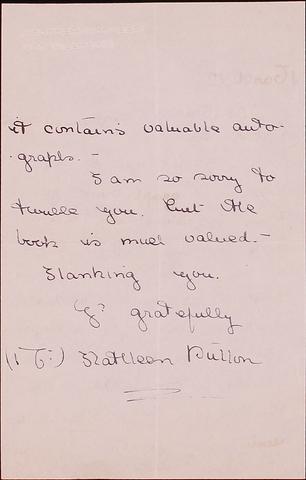 it contains valuable auto-
graphs. -
I am so sorry to
trouble you. but the
book is much valued. -
Thanking you.
Yrs gratefully
Kathleen